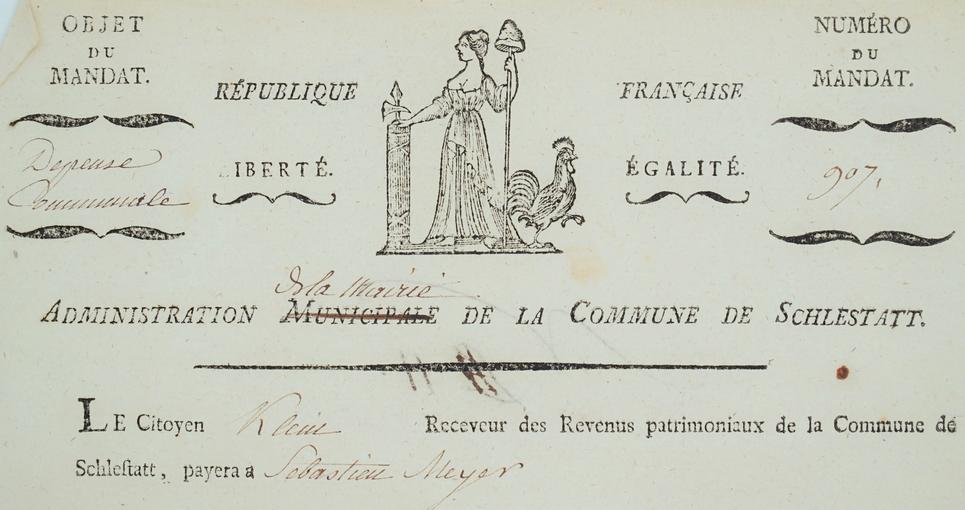 OBJET
DU
MANDAT.
Depense
Communale
RÉPUBLIQUE FRANÇAISE
LIBERTÉ. ÉGALITÉ.
NUMÉRO
DU
MANDAT.
907.
de la Mairie
ADMINISTRATION MUNICIPALE DE LA COMMUNE DE SCHLESTATT.
LE Citoyen Klein Receveur des Revenus patrimoniaux de la Commune de
Schleſtatt, payera a Sebastien Meyer